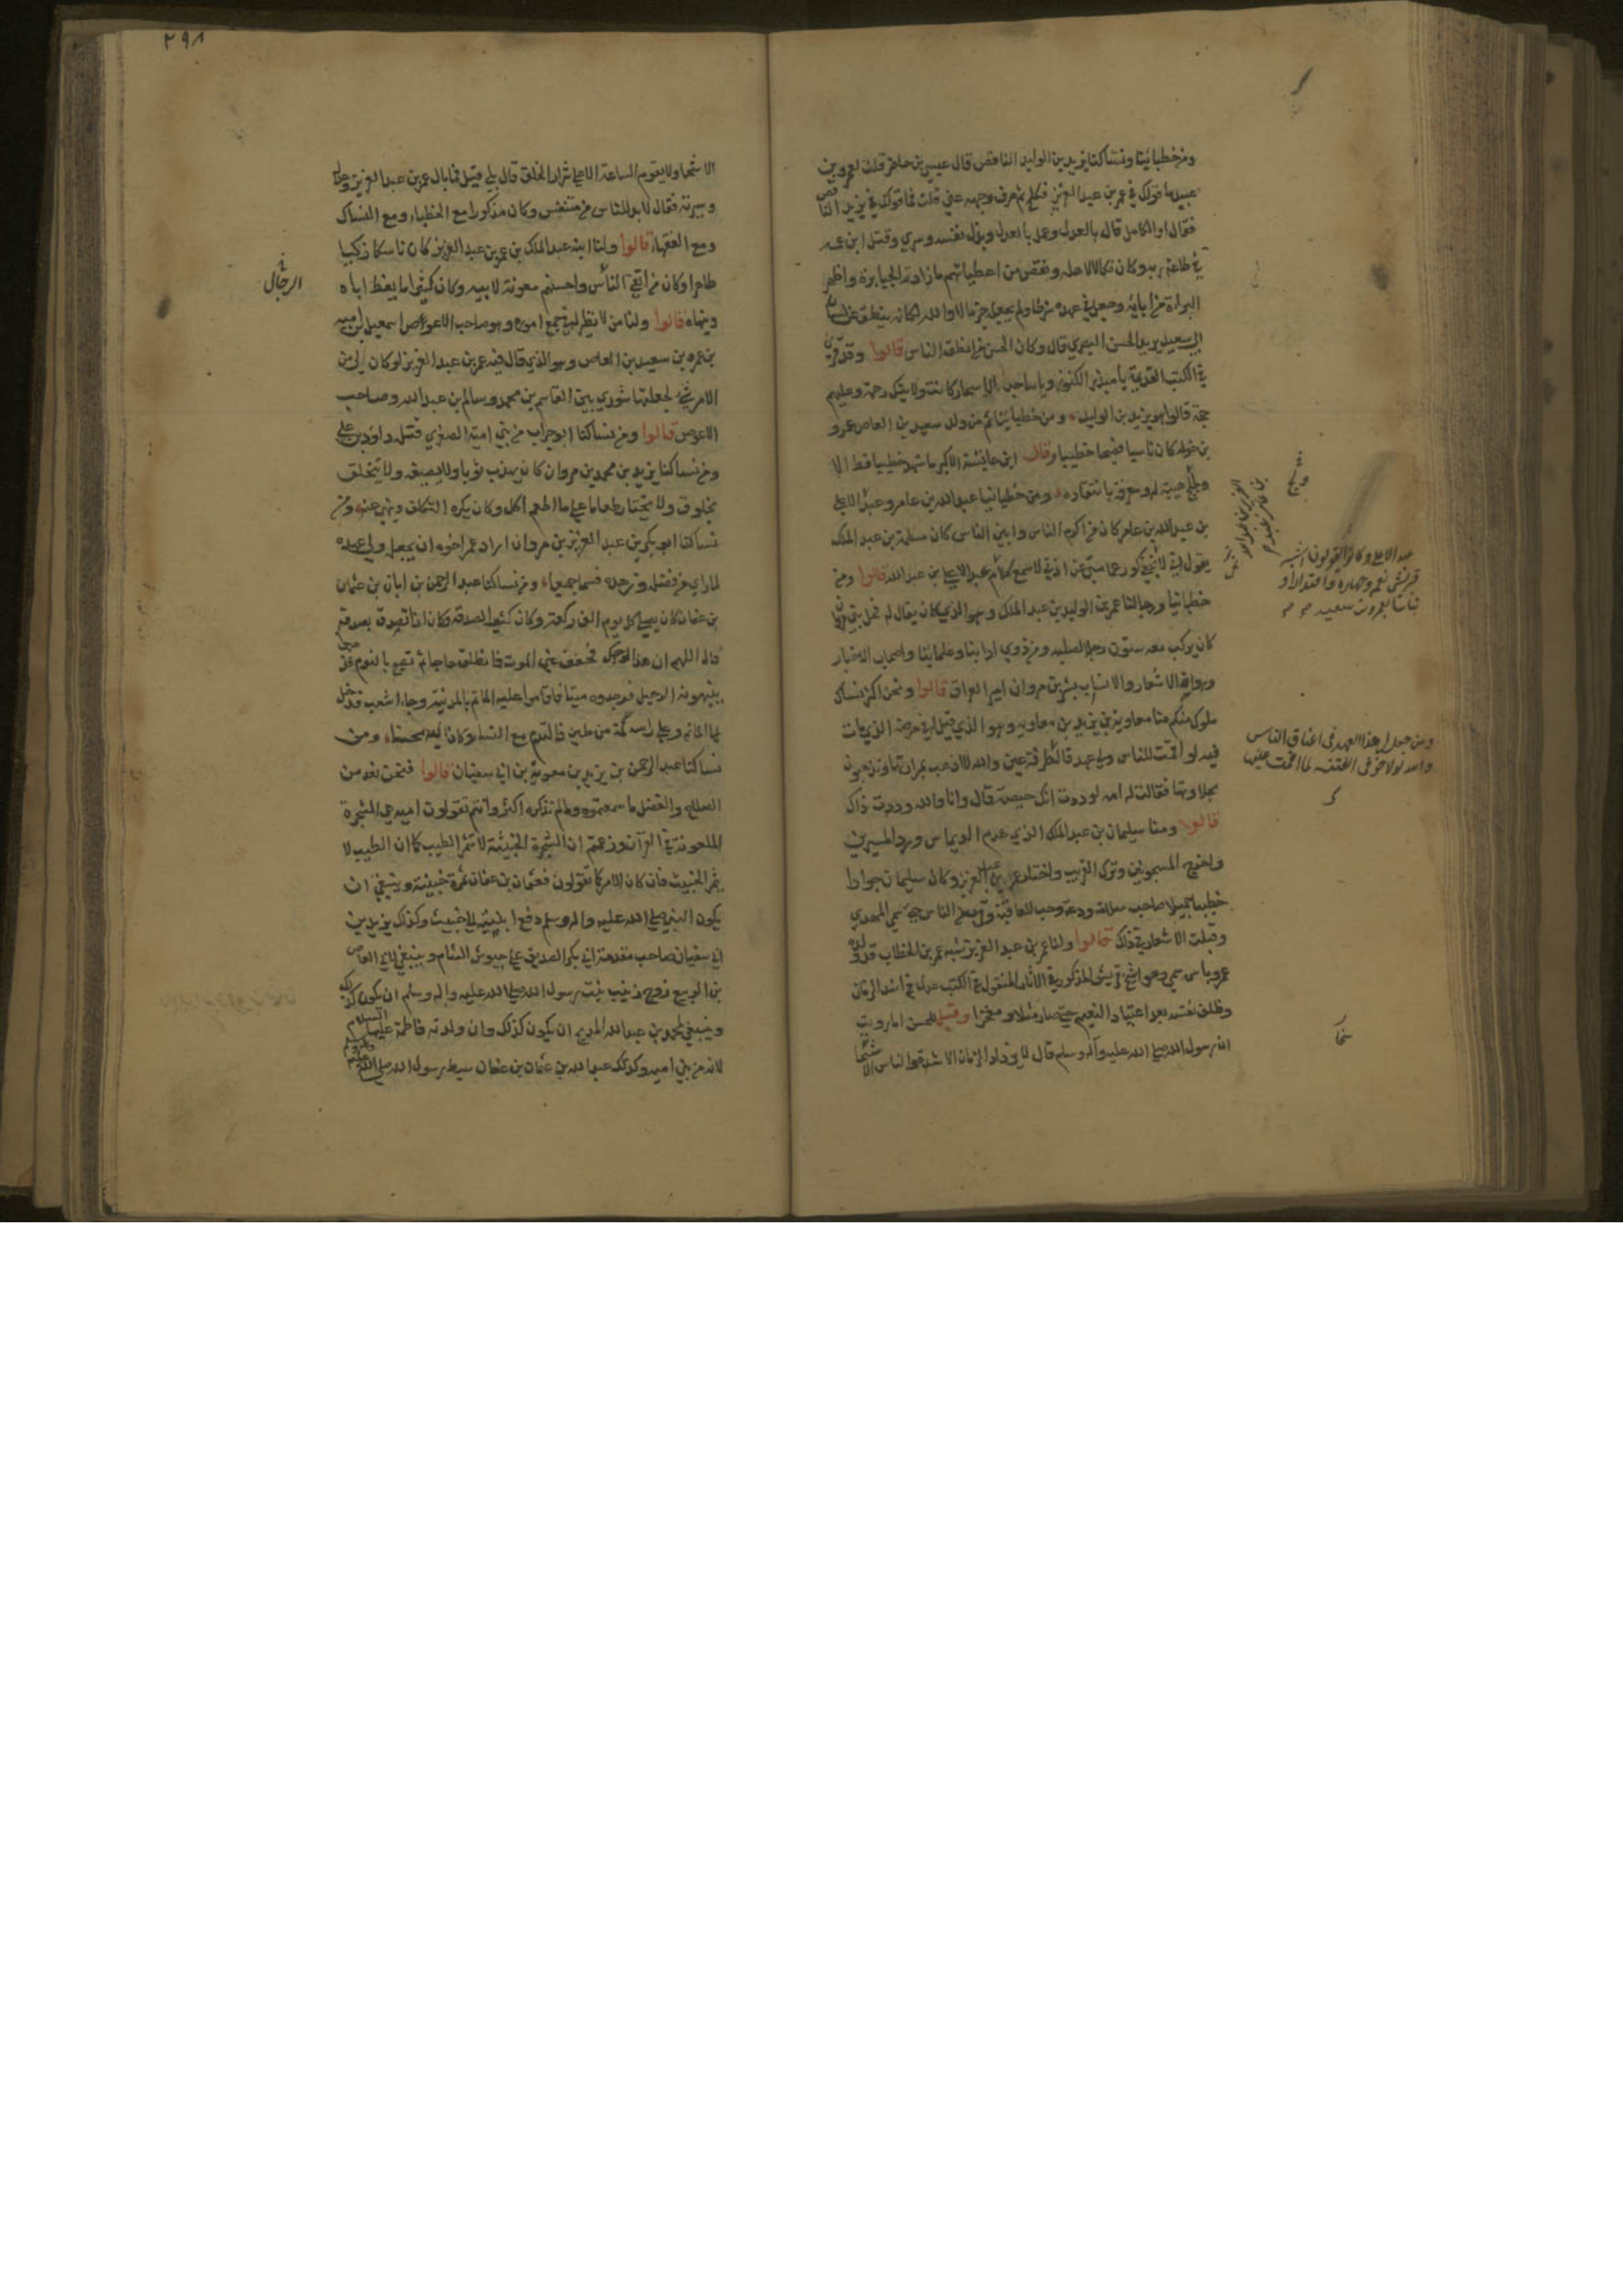 ومن خطبائنا ونساكنا يزيد بن الوليد الناقص قال عيسى بن حاضر قلت لعمرو بن
عبيد ما قولك في عمر بن عبد العزيز فكلح ثم صرف وجهه عني قلت فما قولك في يزيد الناقص
فقال او الكامل قال بالعدل وعمل بالعدل وبذل نفسه وشري وقتل ابن عمه
في طاعة ربه وكان نكالا لاهله ونقص من اعطياتهم ما زادته الجبابرة واظهر
البراءة من ابائه وجعل في عهده شرطا ولم يجعله جزما لا والله لكانه ينطق عن لسان
ابي سعيد يريد الحسن البصري قال وكان الحسن من انطق الناس قالوا وقد قرئ
في الكتب القديمة يا مبذر الكنوز ويا ساجد بالاسحار كانت ولايتك رحمة وعليهم
حجة قالوا هو يزيد بن الوليد ومن خطبائنا ثم من ولد سعيد بن العاص عمرو
بن خولة كان ناسبا فصيحا خطيبا وقال ابن عايشة الاكبر ما شهد خطيبا قط الا
ولجلج هيبة له ومعرفة بانتقاده ومن خطبائنا عبد الله بن عامر وعبد الاعلى
بن عبد الله بن عامر كان من اكرم الناس وابين الناس كان مسلمة بن عبد الملك
يقول اني لانحي كور عمامتي عن اذني لاسمع كلام عبد الاعلى بن عبد الله قالوا ومن
خطبائنا ورجالنا عمر بن الوليد بن عبد الملك وهو الذي كان يقال له فحل بني مروان
كان يركب معه ستون رجلا لصلبه ومن ذوي ادابنا وعلمائنا واصحاب الاخبار
ورواة الاشعار والانساب بشر بن مروان امير العراق قالوا ونحن اكثر نساك
ملوك منكم منا معاوية بن يزيد بن معاوية وهو الذي قيل له في مرضه الذي مات
فيه لو اقمت للناس ولي عهد قال
والله لا اذهب بمرارتها وتذهبون
بحلاوتها فقالت له امه لوددت انك حيضة قال وانا والله وددت ذاك
قالوا ومنا سليمان بن عبد الملك الذي هدم الديماس ورد المسيرين
واخرج المسجونين وترك القريب واختار عمر بن عبد العزيز وكان سليمان جوادا
خطيبا جميلا صاحب سلامة ودعة وحب للعافية وقرب من الناس حتى سمي المهدي
وقيلت الاشعار في ذلك قالوا ولنا عمر بن عبد العزيز شبه عمر بن الخطاب قد ولده
عمر وباسمه سمي وهو اشج قريش المذكور في الاثار المنقولة في الكتب عدل في اشد الزمان
وظلف نفسه بعد اعتياد النعيم حتى صار مثلا ومفخرا وقيل للحسن اما رويت
ان رسول الله صلى الله عليه وآله وسلم قال لا يزداد الزمان الا شدة والناس الا شحا
شح
ولج
عبد الاعلى وكانوا يقولون اشبه
قريش نغمة وجهارة واقتدارا و
بيانا بعمرو بن سعيد
ومن جعل لي هذا العهد في اعناق الناس
والله لولا خوفي الفتنة لما اقمت عليها
شحا
٢٩٨
الا شحا ولا تقوم الساعة الا على شرار الخلق قال بلى قيل فما بال عمر بن عبد العزيز وعدله
وسيرته فقال لا بد للناس من متنفس وكان مذكورا مع الخطباء ومع النساك
ومع الفقهاء قالوا ولنا ابنه عبد الملك بن عمر بن عبد العزيز كان ناسكا زكيا
طاهرا وكان من اتقى الناس واحسنهم معونة لابيه وكان كثيرا ما يعظ اباه
وينهاه قالوا ولنا من لا نظير له في جميع اموره وهو صاحب الاعوص اسمعيل بن امية
بن عمرو بن سعيد بن العاص وهو الذي قال فيه عمر بن عبد العزيز لو كان الي من
الامر شيء لجعلتها شورى بين القاسم بن محمد وسالم بن عبد الله وصاحب
الاعوص قالوا ومن نساكنا ابو حراب من بني امية الصغرى قتله داود بن علي
ومن نساكنا يزيد بن محمد بن مروان كان لا يهدب ثوبا ولا يصبغه ولا يتخلق
بخلوق ولا يختار طعاما على ما اطعم اكل وكان يكره التكلف وينهى عنه ومن
نساكنا ابو بكر بن عبد العزيز بن مروان اراد عمر اخوه ان يجعله ولي عهده
لما راى من فضله وزهده فسما جميعا ومن نساكنا عبد الرحمن بن ابان بن عثمان
بن عفان كان يصلي كل يوم الف ركعة وكان كثير الصدقة وكان اذا تصدق بصدقة
قال اللهم ان هذا لوجهك فخفف عني الموت فانطلق حاجا ثم تصبح بالنوم فذهبوا
ينبهونه للرحيل فوجدوه ميتا فاقاموا عليه الماتم بالمدينة وجاء اشعب فدخل
الماتم وعلى راسه كبة من طين فالتدم مع النساء وكان اليه محسنا ومن
نساكنا عبد الرحمن بن يزيد بن معوية بن ابي سفيان قالوا فنحن نعد من
الصلاح والفضل ما سمعتموه وما لم نذكره اكثر وانتم تقولون امية هي الشجرة
الملعونة في القرآن وزعمتم ان الشجرة الخبيثة لا تثمر الطيب كما ان الطيب لا
يثمر الخبيث فان كان الامر كما تقولون فعثمان بن عفان ثمرة خبيثة وينبغي ان
يكون النبي صلى الله عليه واله وسلم دفع ابنتيه الى خبيث وكذلك يزيد بن
ابي سفيان صاحب مقدمة ابي بكر الصديق على جيوش الشام وينبغي لابي العاص
بن الربيع زوج زينب بنت رسول الله صلى الله عليه واله وسلم ان يكون كذلك
وينبغي لمحمد بن عبد الله المديني ان يكون كذلك وان ولدته فاطمة عليها السلام
لانه من بني امية وكذلك عبد الله بن عثمان بن عفان سبط رسول الله صلى الله عليه وآله وسلم
الرجال